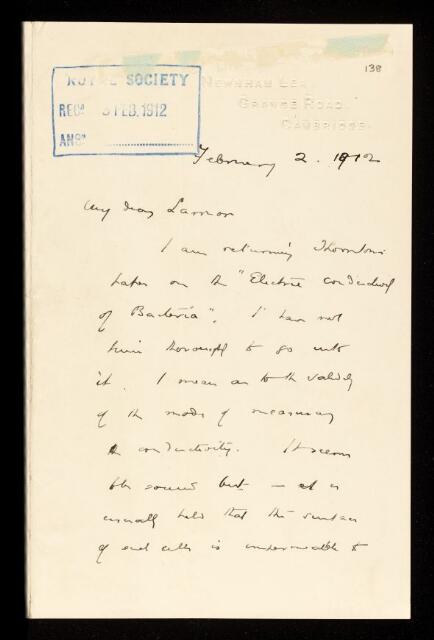 138
ROYAL SOCIETY
REC^D 3 FEB. 1912
ANS^D
NEWNHAM LEA
GRANGE ROAD.
CAMBRIDGE.
February 2. 1912
My dear Larmor
I am returning Thornton's
paper on the "Electric conductivity
of Bacteria". I have not
time thoroughly to go into
it. I mean as to the validity
of the mode of measuring
conductivity. It seems
to be sound but — it is
usually held that the surface
of such cells is impermeable to